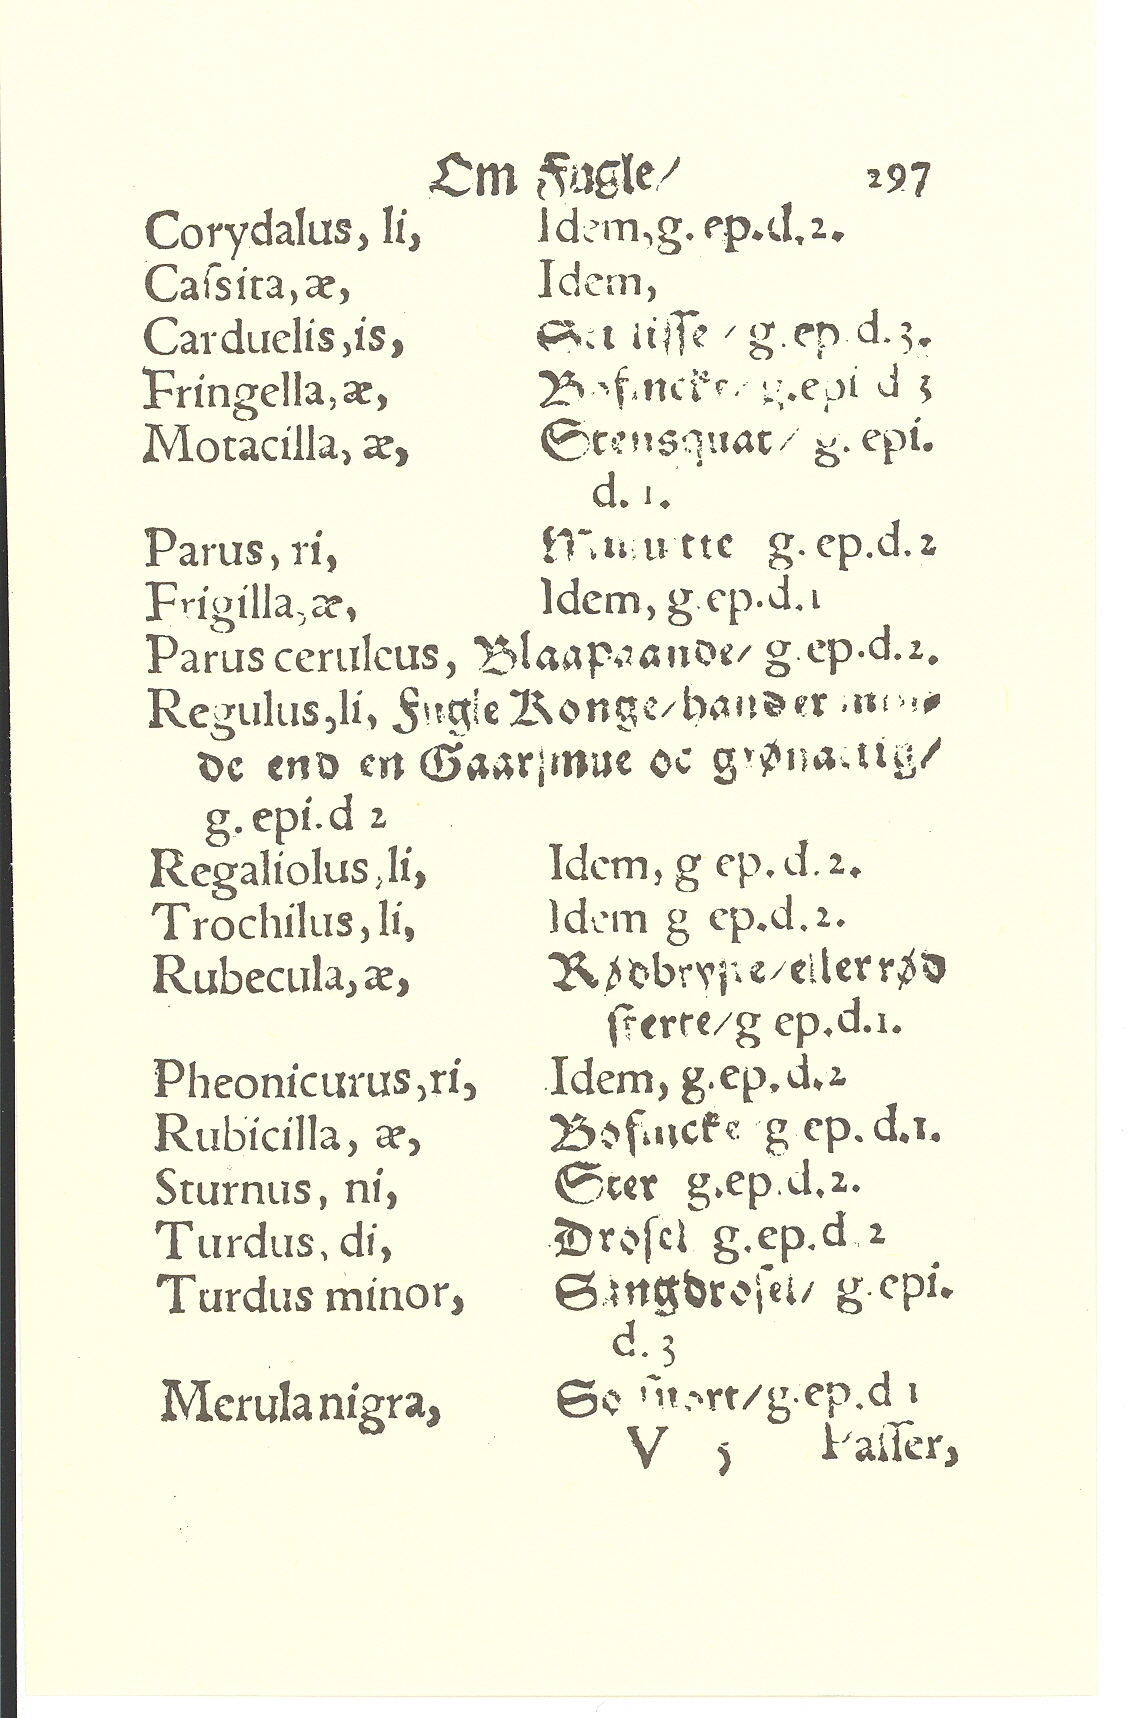 Om Fugle/ 297
Corydalus, li, Idem, g. ep. d. 2.
Caſsita, æ, Idem,
Carduelis, is, g. ep d. 3.
Fringella, æ, Bofincke/ g. epi d 3
Motacilla, æ, Stensquat/ g. epi.
d. 1.
Parus, ri, g. ep. d. 2
Frigilla, æ, Idem, g. ep. d. 1
Parus ceruleus, Blaapaande/ g. ep. d. 2.
Regulus, li, Fugle Konge/ hand er
de end en Gaarſmue oc grønactig/
g. epi. d 2
Regaliolus, li, Idem, g ep. d. 2.
Trochilus, li, Idem g ep. d. 2.
Rubecula, æ, Rødbryste/ eller rød
ſterte/ g ep. d. 1.
Pheonicurus, ri, Idem, g. ep. d. 2
Rubicilla, æ, Bofincke g ep. d. 1.
Sturnus, ni, Ster g. ep. d. 2.
Turdus, di, Droſel g. ep. d 2
Turdus minor, Sangdroſel/ g. epi.
d. 3
Merula nigra, g. ep. d 1
V 5 Paſſer,